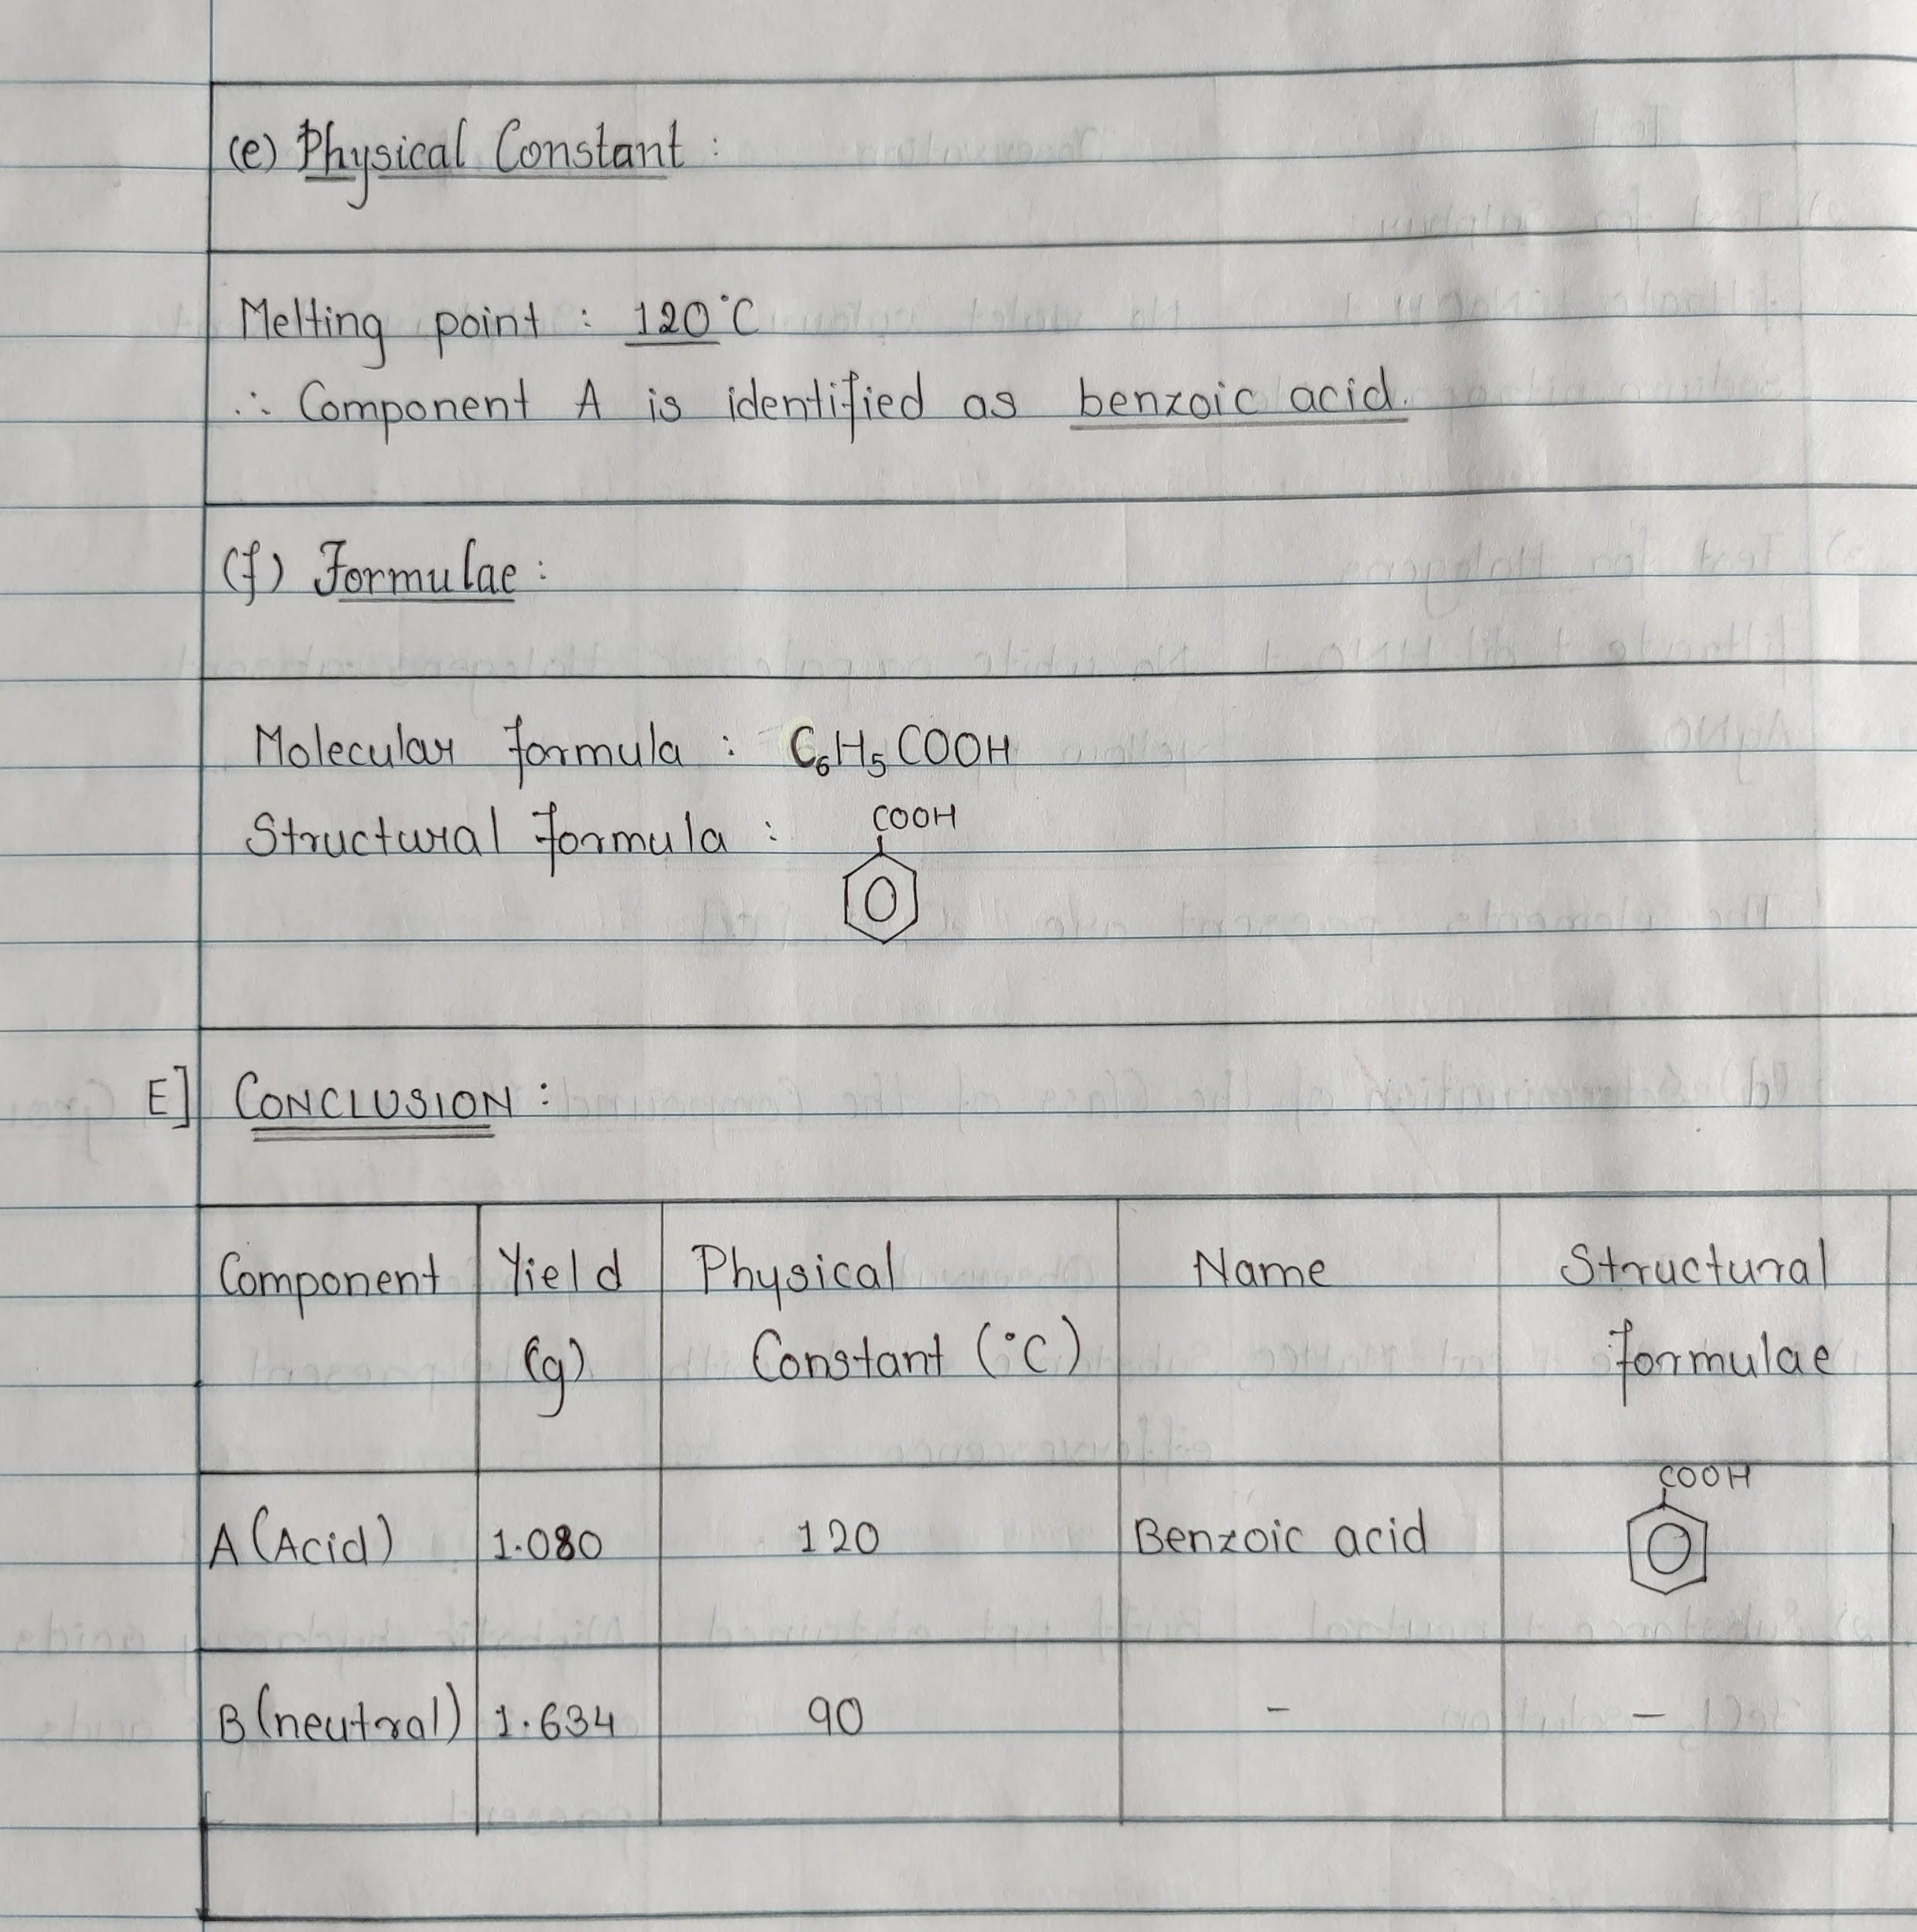 (e) Physical Constant :
Melting point : 120°C
∴ Component A is identified as benzoic acid.
(f) Formulae :
Molecular formula : C₆H₅COOH
Structural formula :
COOH
E] CONCLUSION :
Component Yield (g) Physical Constant (°C) Name Structural formulae
COOH
A (Acid) 1.080 120 Benzoic acid
B (neutral) 1.634 90 - -